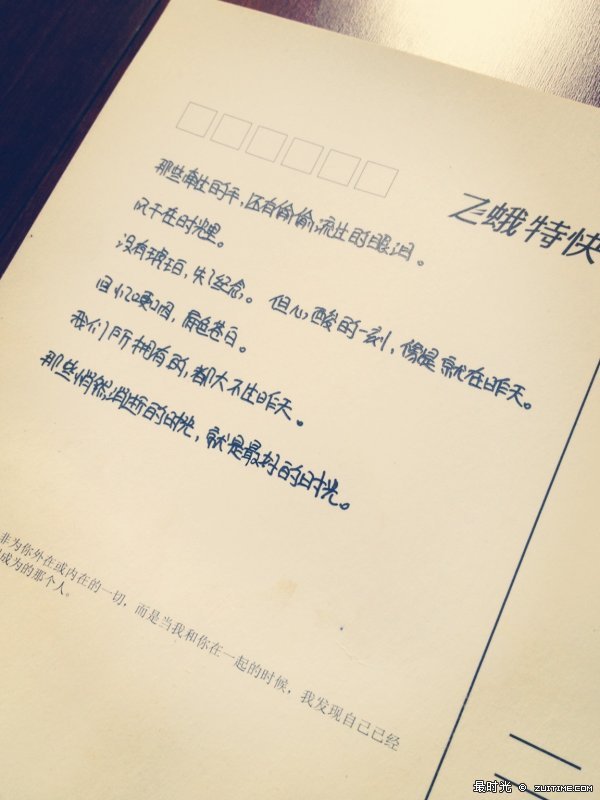 飞蛾特快
那些牵过的手，还有偷偷流过的眼泪。
风干在时光里。
没有琥珀，失了纪念。但心酸的一刻，像是就在昨天。
回忆哽咽，唇色苍白。
我们所拥有的，都大不过昨天。
那些悄然消逝的时光，就是最好的时光。
非为你外在或内在的一切，而是当我和你在一起的时候，我发现自己已经
成为的那个人。
最时光 © ZUITIME.COM